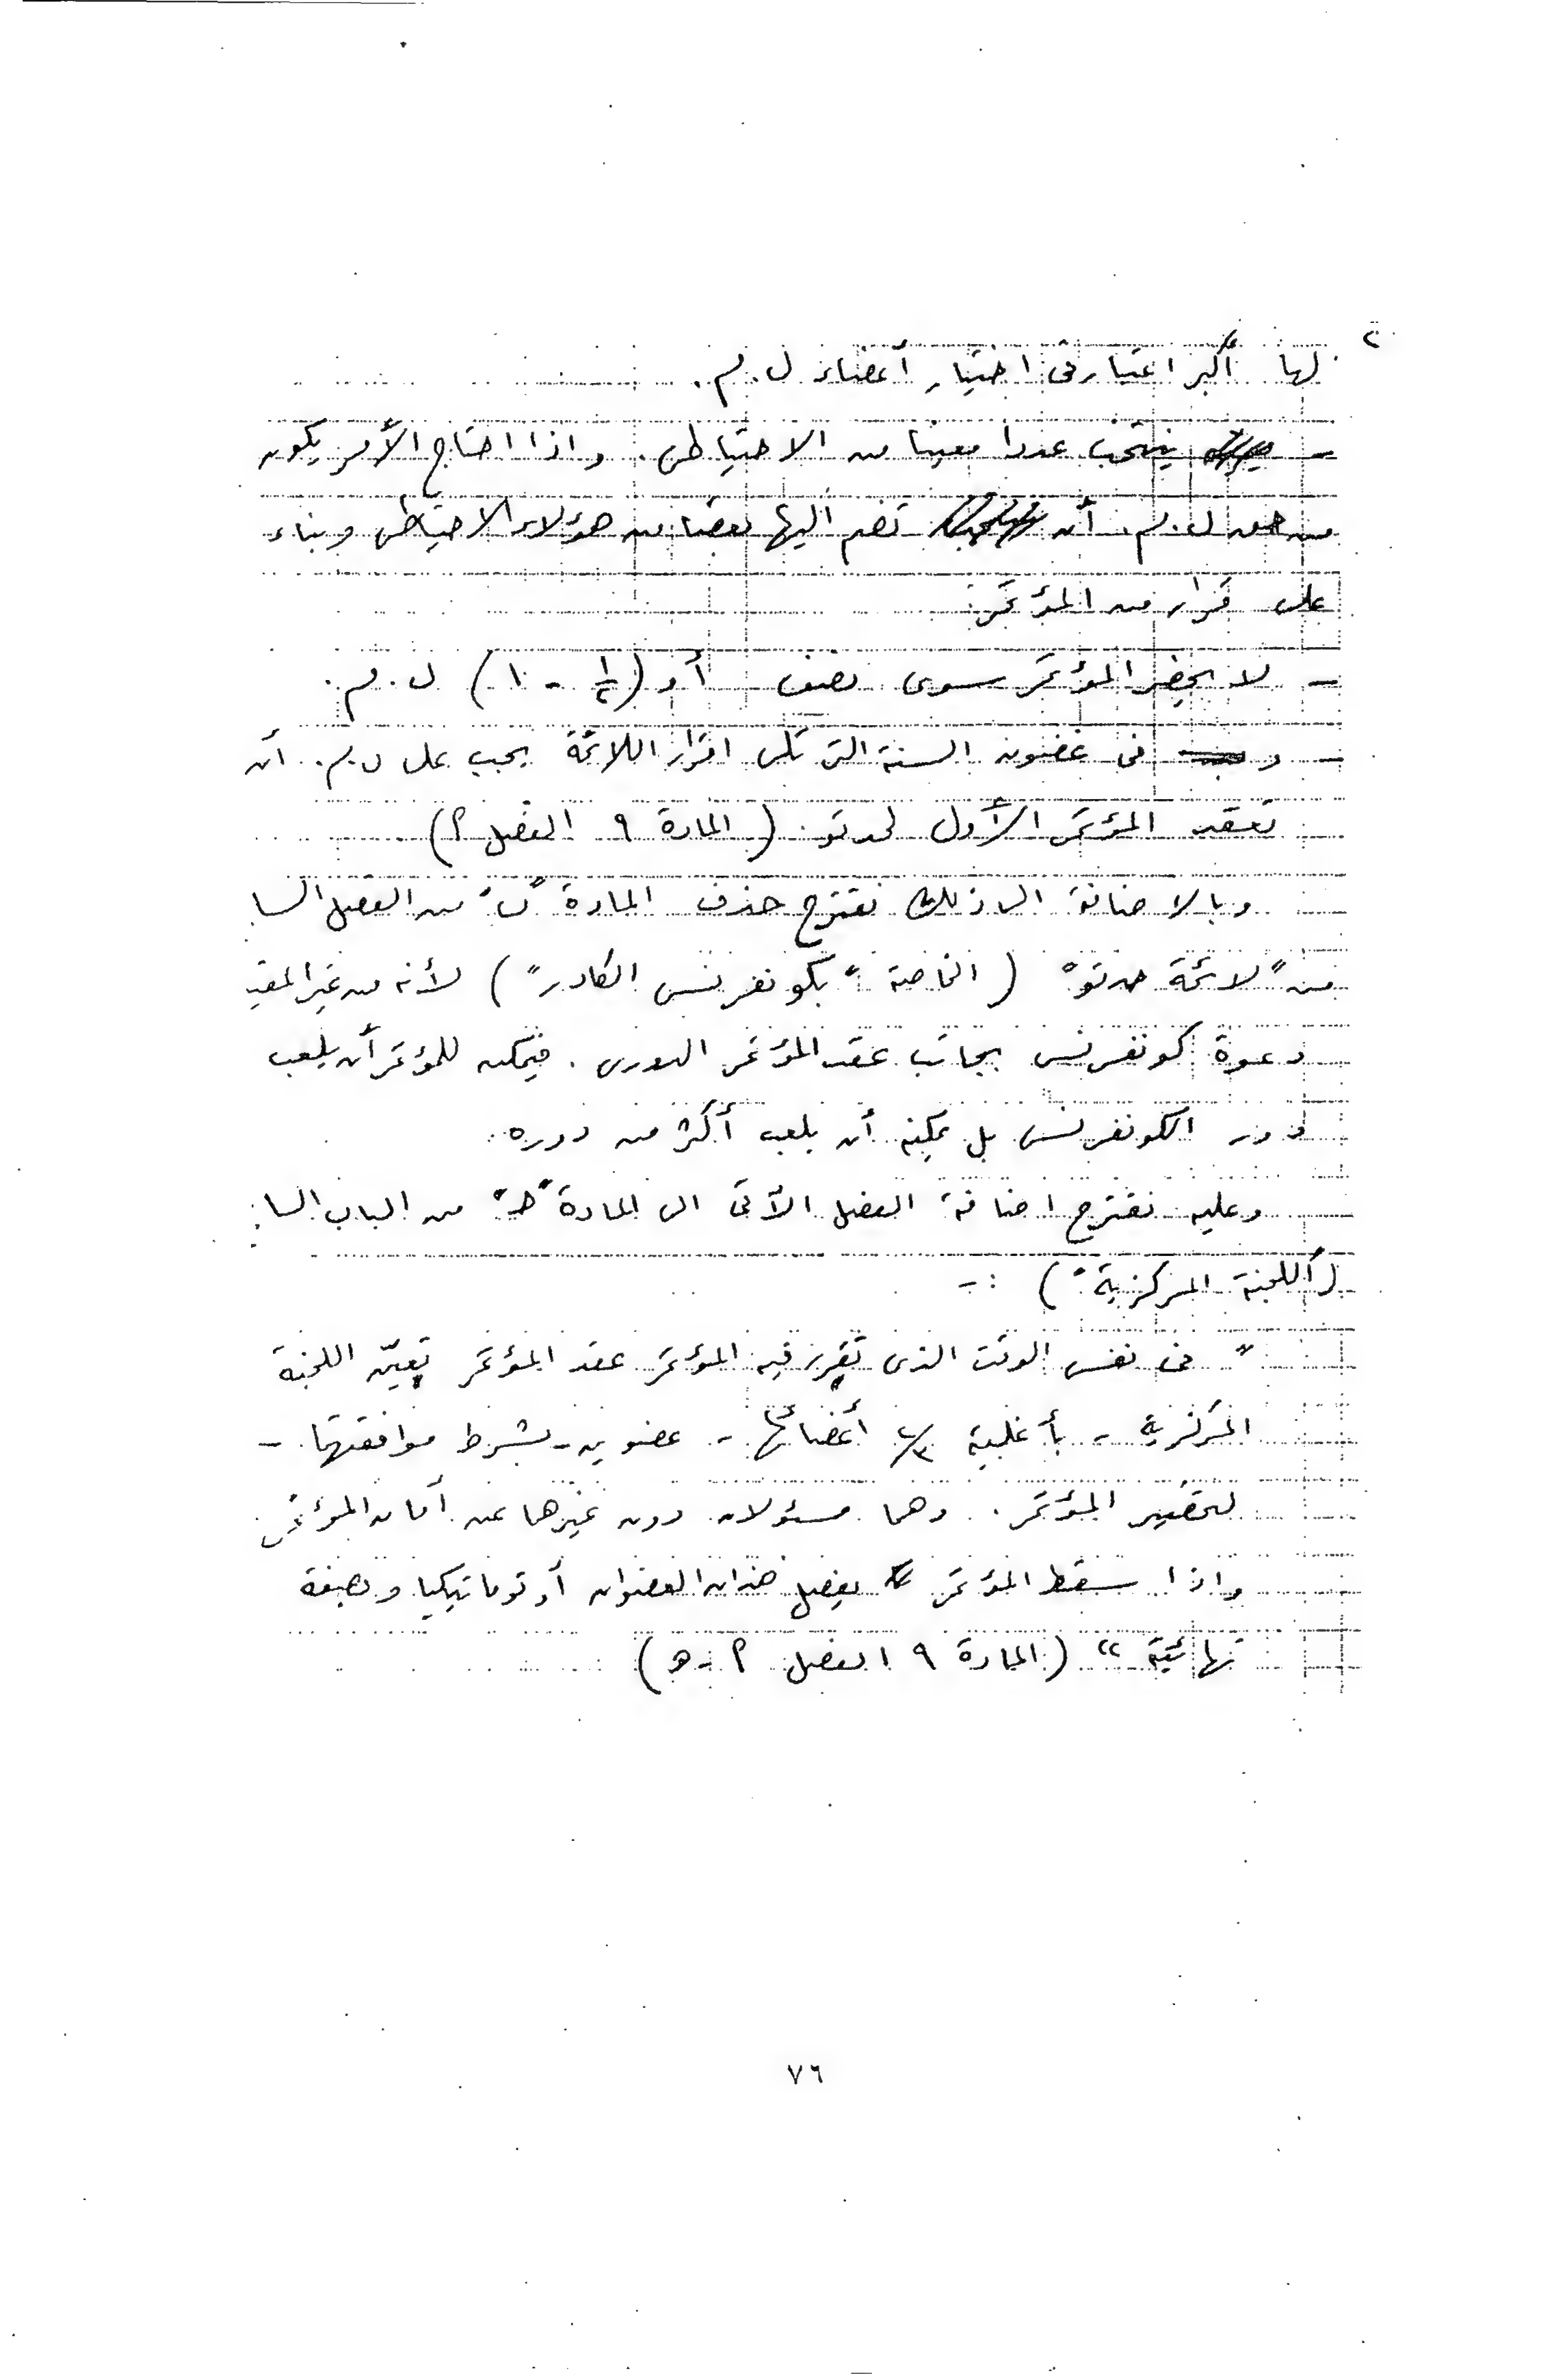 ٢
لها أكبر اعتبار فى اختيار أعضاء ل. م.
- ينتخب عددا معينا من الاحتياطى. واذا احتاج الأمر يكون
من حق ل. م. أن تضم اليها بعضا من هؤلاء الاحتياطى وبناء
على قرار من المؤتمر.
- لا يحضر المؤتمر سوى نصف أو (١/٢ - ١) ل. م.
- و فى غضون السنة التى تلى اقرار اللائحة يجب على ل. م. أن
تعقد المؤتمر الأول لحدتو. (المادة ٩ الفصل ٢)
وبالاضافة الى ذلك نقترح حذف المادة "ب" من الفصل السا
من "لائحة حدتو" (الخاصة "بكونفرنس الكادر") لأنه من غير المفيد
دعوة كونفرنس بجانب عقد المؤتمر الدورى. فيمكن للمؤتمر أن يلعب
دور الكونفرنس بل يمكنه أن يلعب أكثر من دوره.
وعليه نقترح اضافة الفصل الآتى الى المادة "حـ" من الباب السا
("اللجنة المركزية") :-
" فى نفس الوقت الذى تقرر فيه المؤتمر عقد المؤتمر تعيّن اللجنة
المركزية - بأغلبية ٢/٣ أعضائها - عضوين - بشرط موافقتهما -
لتحضير المؤتمر. وهما مسئولان دون غيرهما عن أمان المؤتمر
واذا سقط المؤتمر يفصل هذان العضوان أوتوماتيكيا وبصفة
نهائية " (المادة ٩ الفصل ٢ - هـ)
٧٦